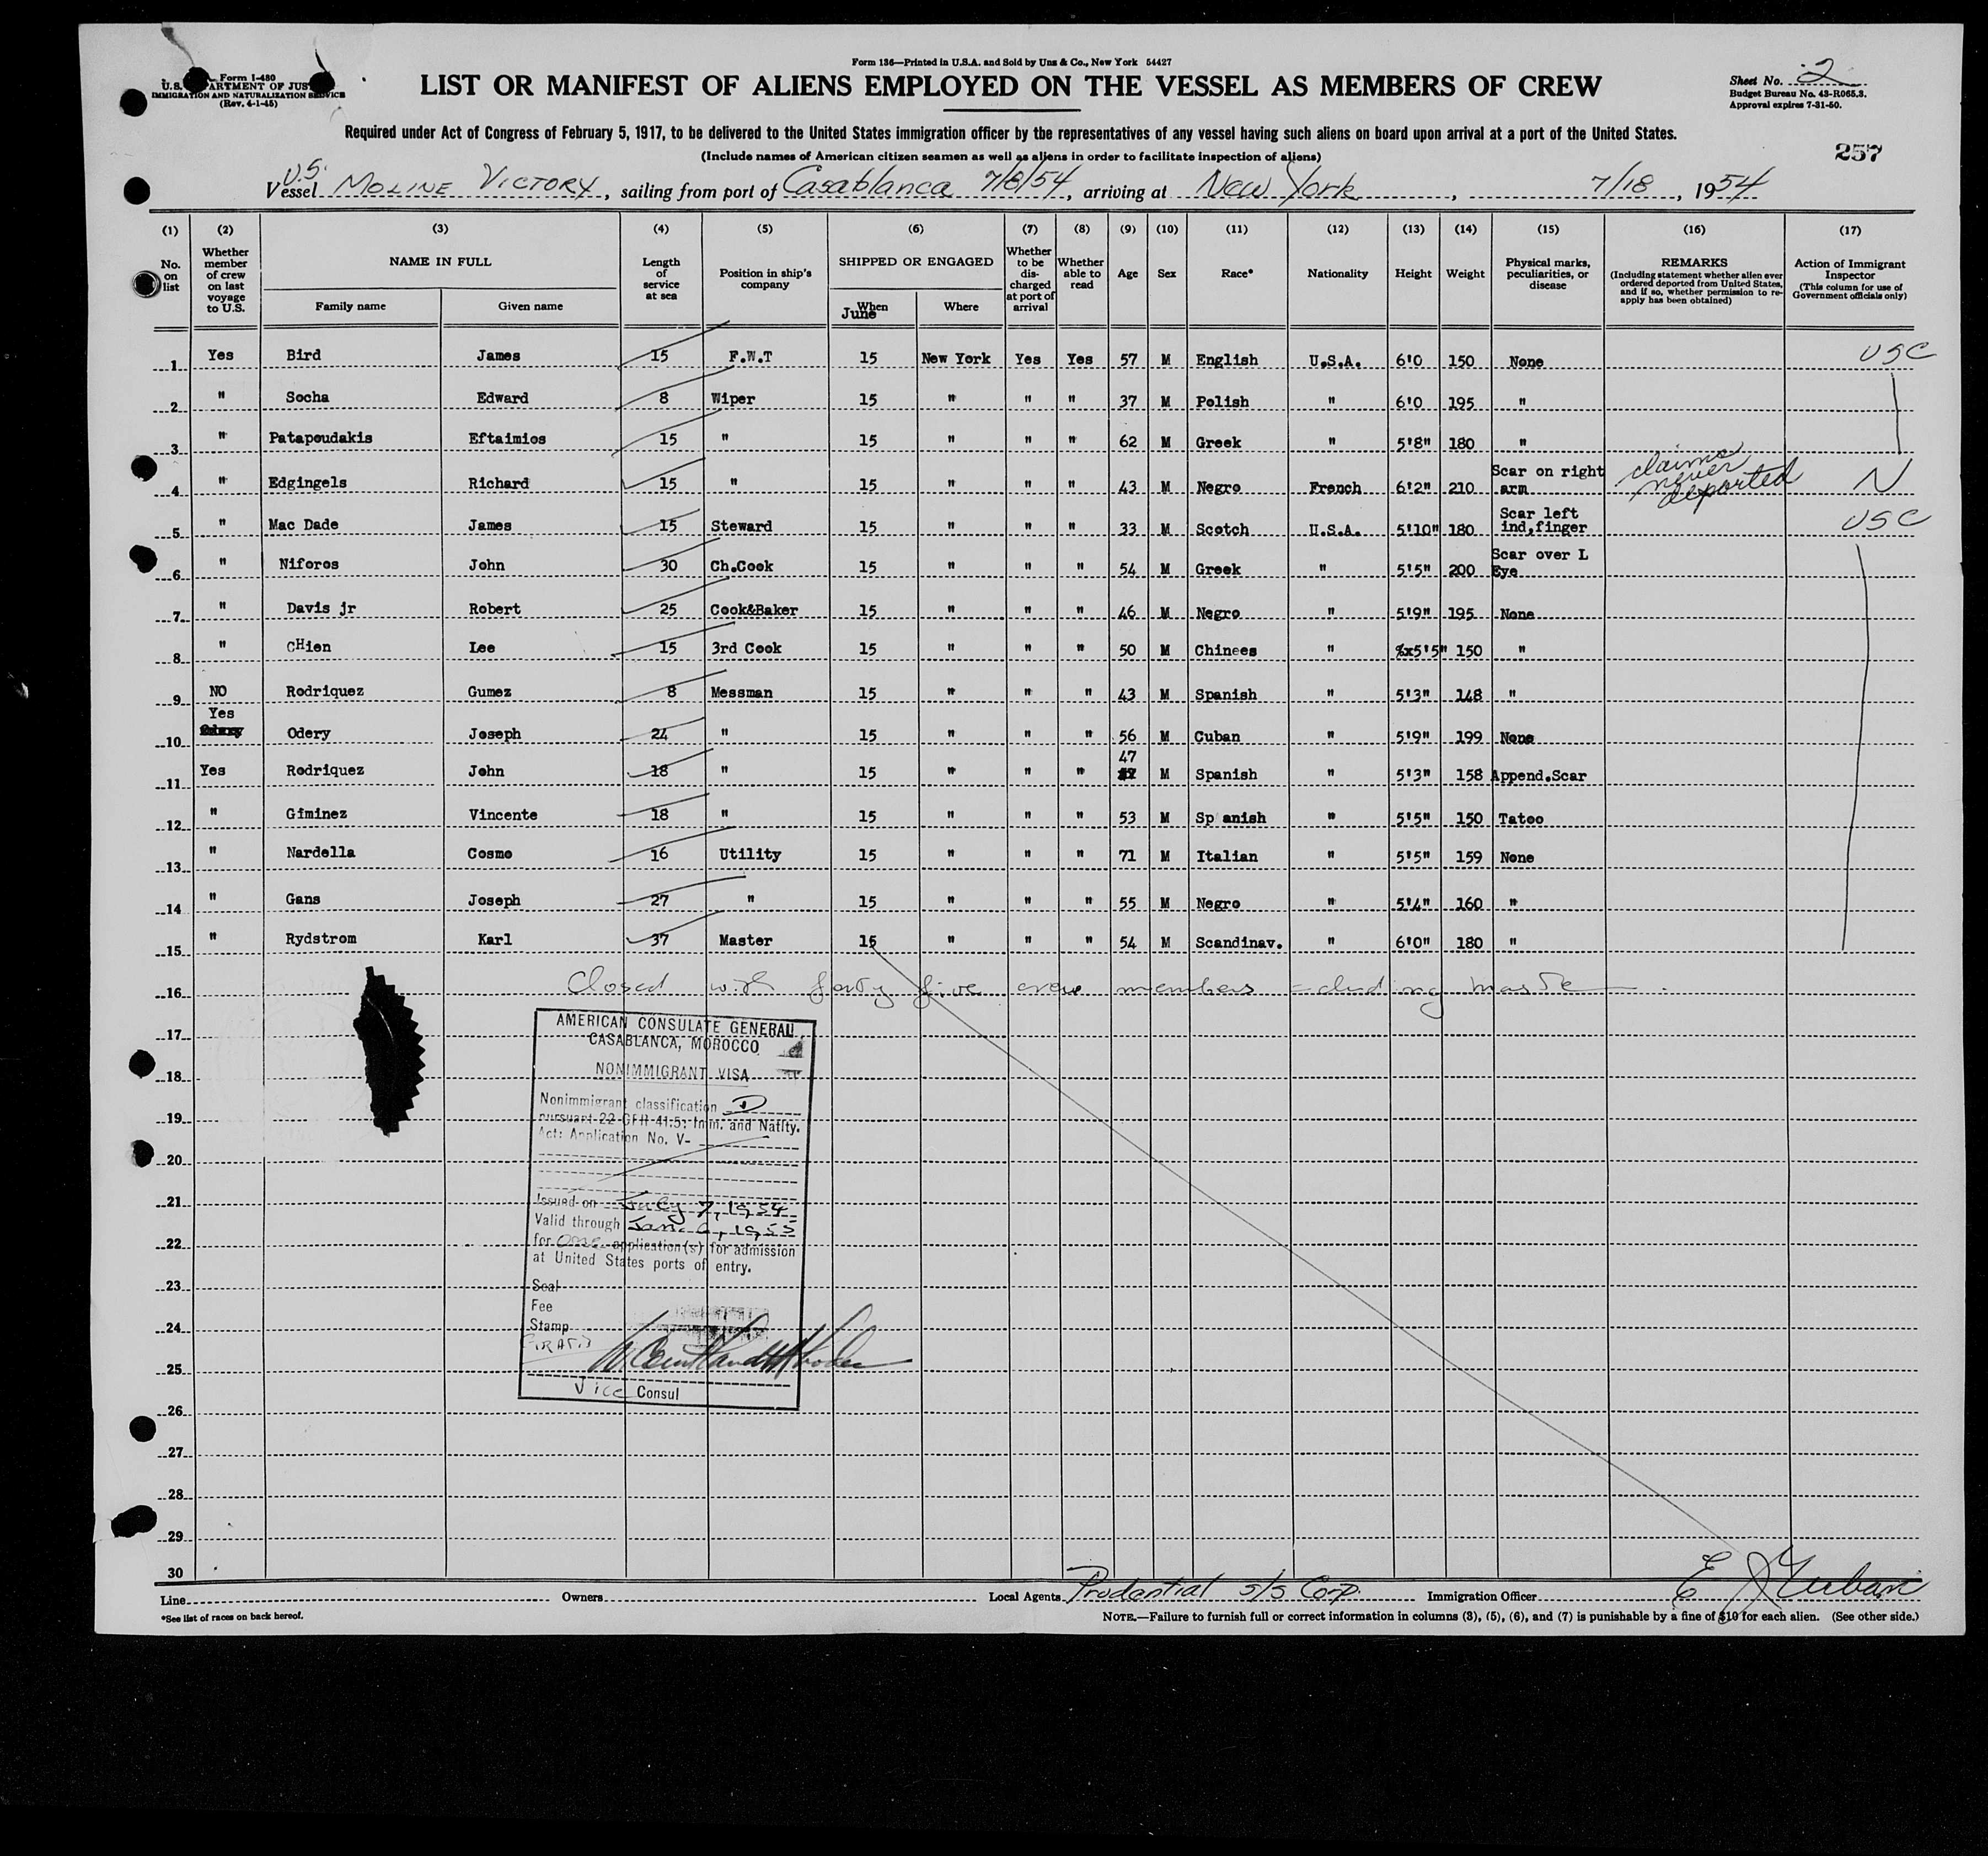 Form I-480
U.S. DEPARTMENT OF JUSTICE
IMMIGRATION AND NATURALIZATION SERVICE
(Rev. 4-1-45)
Form 136—Printed in U.S.A. and Sold by Unz & Co., New York 54427
LIST OR MANIFEST OF ALIENS EMPLOYED ON THE VESSEL AS MEMBERS OF CREW
Sheet No. 2
Budget Bureau No. 43-R065.3.
Approval expires 7-31-50.
Required under Act of Congress of February 5, 1917, to be delivered to the United States immigration officer by the representatives of any vessel having such aliens on board upon arrival at a port of the United States.
(Include names of American citizen seamen as well as aliens in order to facilitate inspection of aliens)
257
U.S.
Vessel MOLINE VICTORY, sailing from port of Casablanca 7/8/54, arriving at New York, 7/18, 1954
(1) (2) (3) (4) (5) (6) (7) (8) (9) (10) (11) (12) (13) (14) (15) (16) (17)
No. on list
Whether member of crew on last voyage to U.S.
NAME IN FULL
Family name
Given name
Length of service at sea
Position in ship's company
SHIPPED OR ENGAGED
When
June
Where
Whether to be discharged at port of arrival
Whether able to read
Age
Sex
Race*
Nationality
Height
Weight
Physical marks, peculiarities, or disease
REMARKS
(Including statement whether alien ever ordered deported from United States, and if so, whether permission to re-apply has been obtained)
Action of Immigrant Inspector
(This column for use of Government officials only)
1 Yes Bird James 15 F.W.T 15 New York Yes Yes 57 M English U.S.A. 6'0 150 None USC
2 " Socha Edward 8 Wiper 15 " " " 37 M Polish " 6'0 195 "
3 " Patapoudakis Eftaimios 15 " 15 " " " 62 M Greek " 5'8" 180 "
4 " Edgingels Richard 15 " 15 " " " 43 M Negro French 6'2" 210 Scar on right arm claims never deported N
5 " Mac Dade James 15 Steward 15 " " " 33 M Scotch U.S.A. 5'10" 180 Scar left ind,finger USC
6 " Niforos John 30 Ch.Cook 15 " " " 54 M Greek " 5'5" 200 Scar over L Eye
7 " Davis jr Robert 25 Cook&Baker 15 " " " 46 M Negro " 5'9" 195 None
8 " CHien Lee 15 3rd Cook 15 " " " 50 M Chinees " 5'5" 150 "
9 NO Rodriquez Gumez 8 Messman 15 " " " 43 M Spanish " 5'3" 148 "
10 Yes Odery Joseph 24 " 15 " " " 56 M Cuban " 5'9" 199 None
11 Yes Rodriquez John 18 " 15 " " " 47 M Spanish " 5'3" 158 Append.Scar
12 " Giminez Vincente 18 " 15 " " " 53 M Sp anish " 5'5" 150 Tatoo
13 " Nardella Cosmo 16 Utility 15 " " " 71 M Italian " 5'5" 159 None
14 " Gans Joseph 27 " 15 " " " 55 M Negro " 5'4" 160 "
15 " Rydstrom Karl 37 Master 15 " " " 54 M Scandinav. " 6'0" 180 "
16 Closed with forty five crew members including master.
17
18
19
20
21
22
23
24
25
26
27
28
29
30
AMERICAN CONSULATE GENERAL
CASABLANCA, MOROCCO
NONIMMIGRANT VISA
Nonimmigrant classification D
pursuant 22 CFR 41.5; Imm. and Natlty.
Act: Application No. V-
Issued on July 7, 1954
Valid through Jan. 6, 1955
for one application(s) for admission
at United States ports of entry.
Seal
Fee
Stamp
GRATIS
Vice Consul
Line
Owners
Local Agents Prudential S/S Corp.
Immigration Officer
*See list of races on back hereof.
NOTE.—Failure to furnish full or correct information in columns (3), (5), (6), and (7) is punishable by a fine of $10 for each alien. (See other side.)